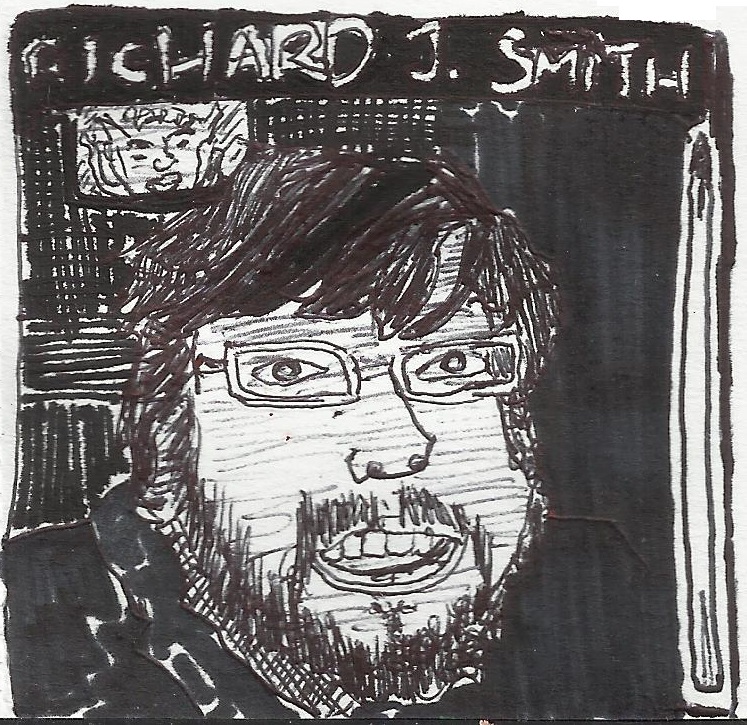 RICHARD J. SMITH